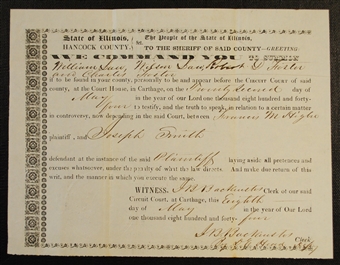 State of Illinois, The People of the State of Illinois,
HANCOCK COUNTY. ss. TO THE SHERIFF OF SAID COUNTY—GREETING
WE COMMAND YOU TO SUMMON
William Law, Wilson Law, Robert D Foster
and Charles Foster
if to be found in your county, personally to be and appear before the Circuit Court of said
county, at the Court House, in Carthage, on the Twenty Second day of
May in the year of our Lord one thousand eight hundred and forty-
four to testify, and the truth to speak, in relation to a certain matter
in controversy, now depending in the said Court, between Francis M Higbee
plaintiff, and Joseph Smith
defendant at the instance of the said Plaintiff laying aside all pretences and
excuses whatsoever, under the penalty of what the law directs. And have you then there this
writ, and the manner in which you execute the same.
WITNESS, J B Backenstos Clerk of our said
Circuit Court, at Carthage, this Eighth
day of May in the year of our Lord
one thousand eight hundred and forty-four
J B Backenstos Clerk